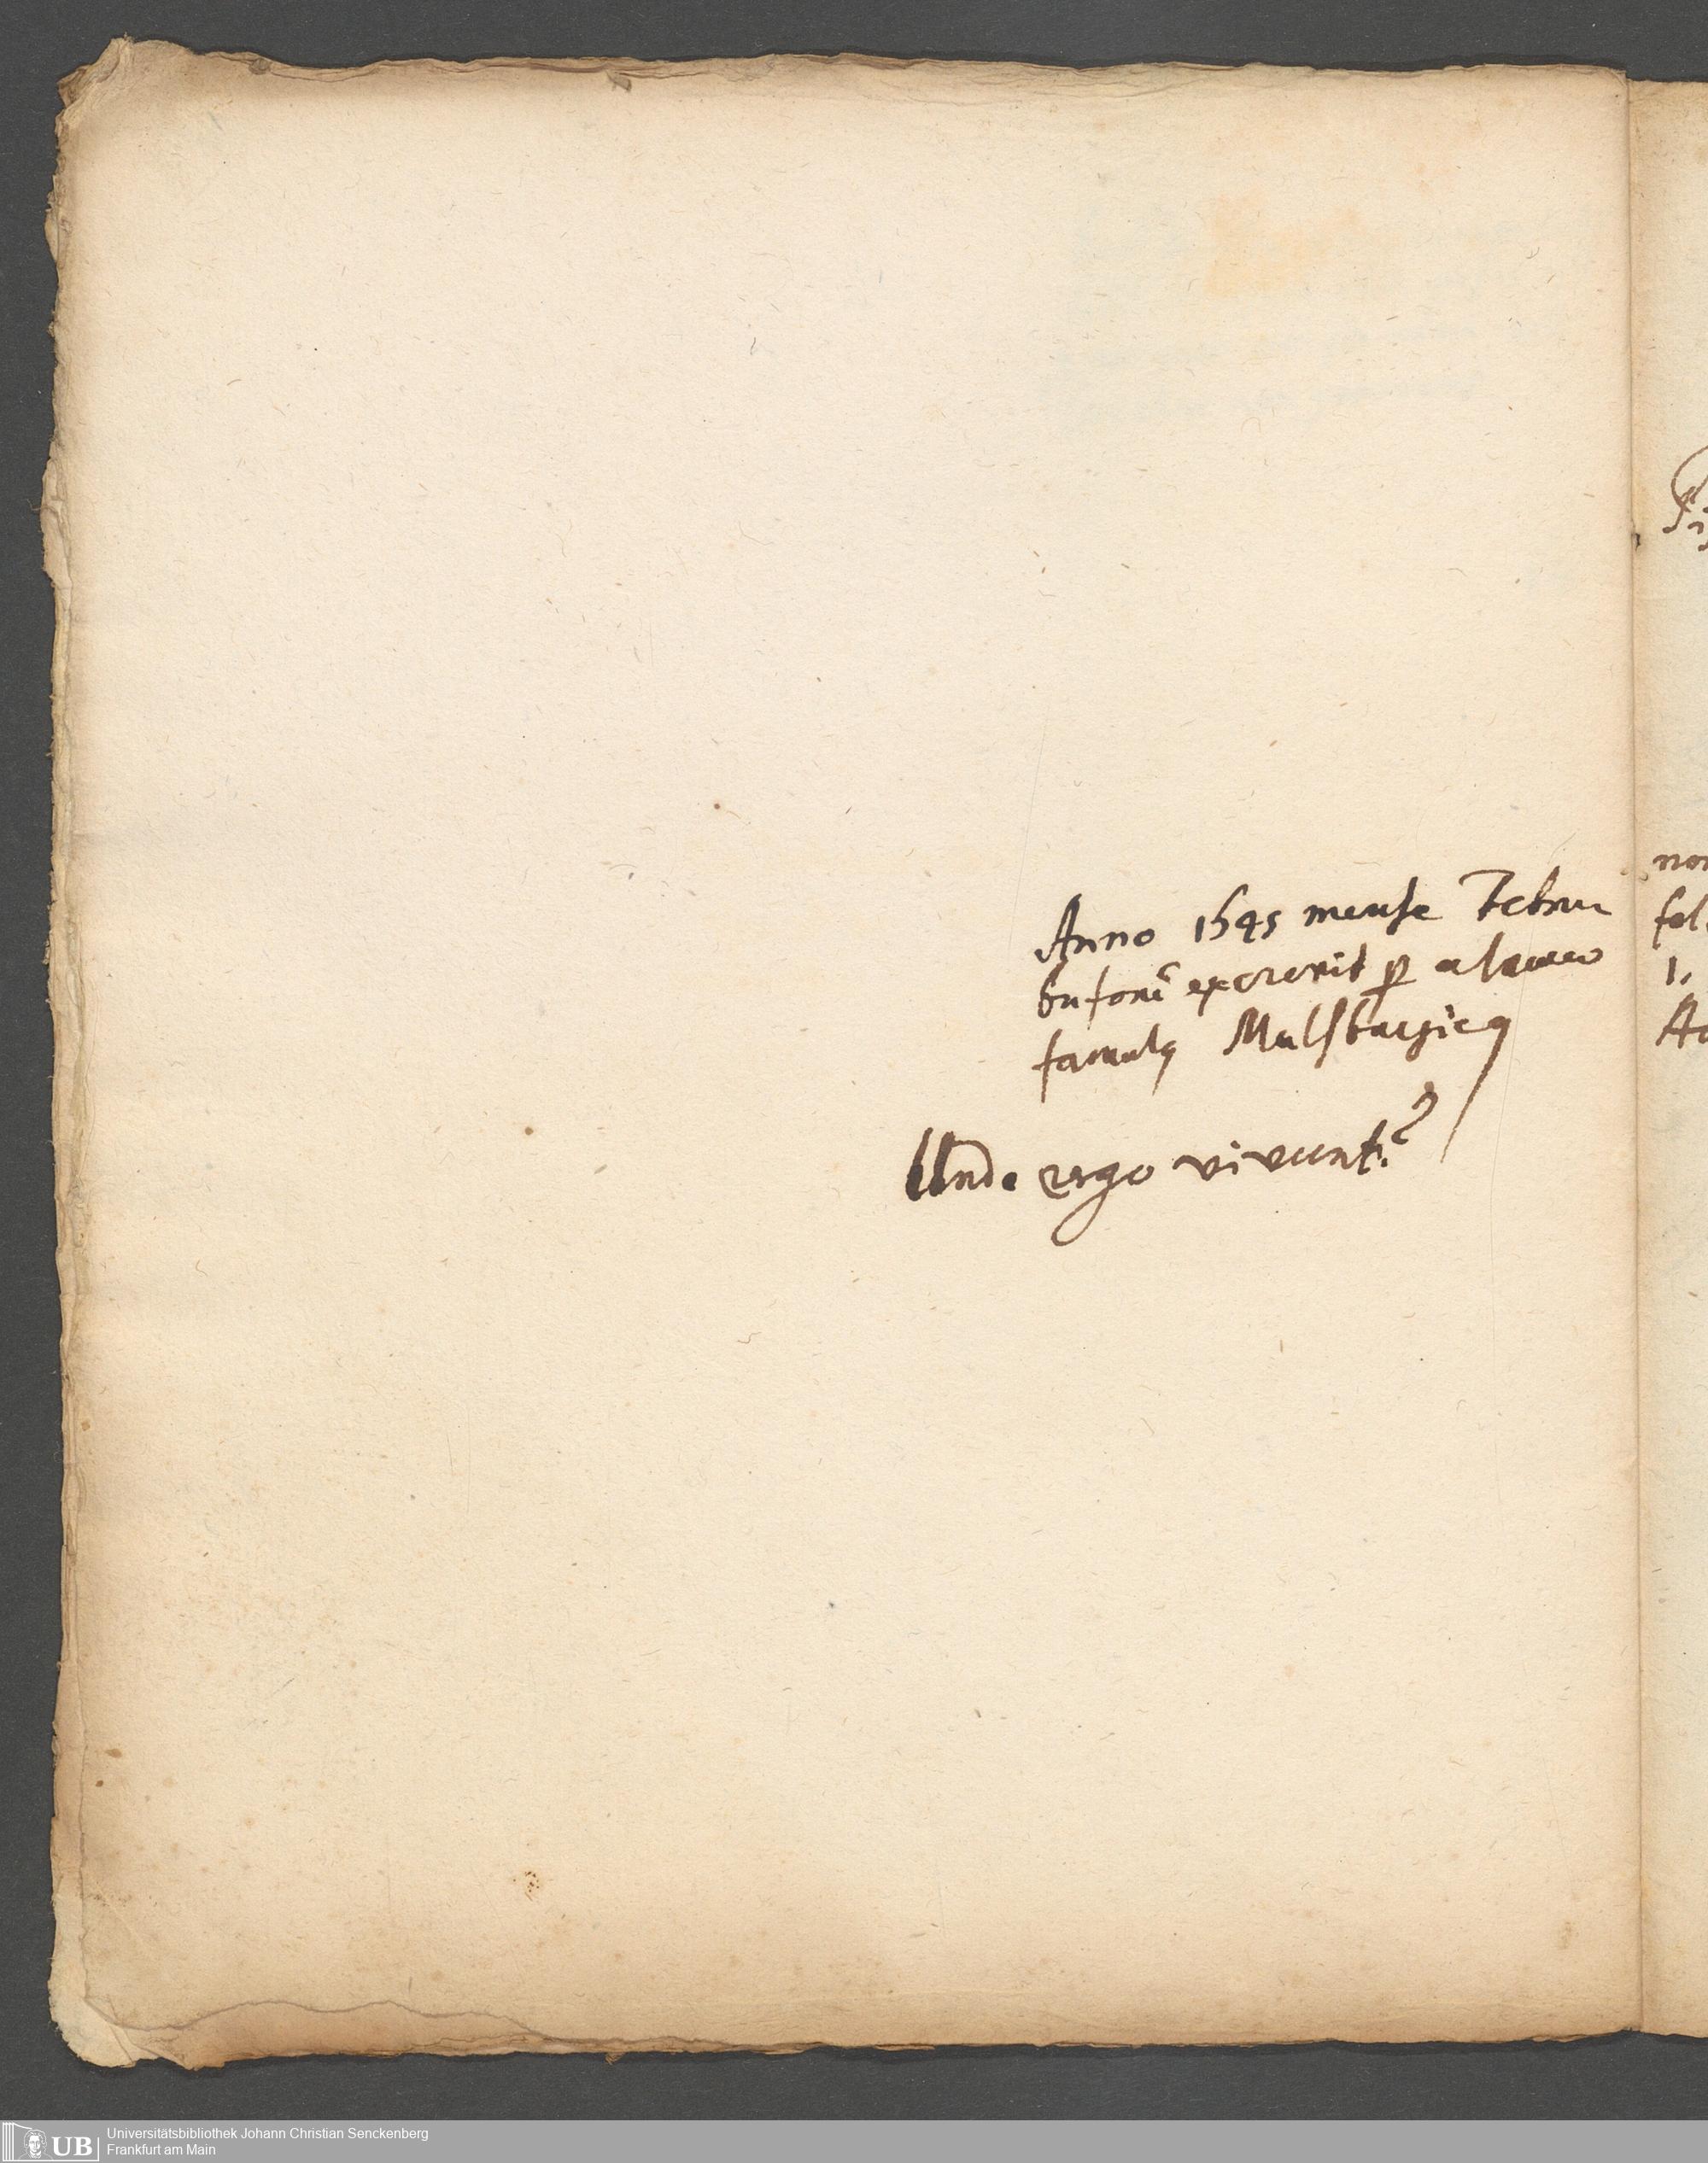 Anno 1545 mense Februa
bufonē excrevit ꝑ alveo
famulꝯ Malsburgicꝯ
Unde ergo vivunt?
non
fol
1.
Universitätsbibliothek Johann Christian Senckenberg
Frankfurt am Main
UB